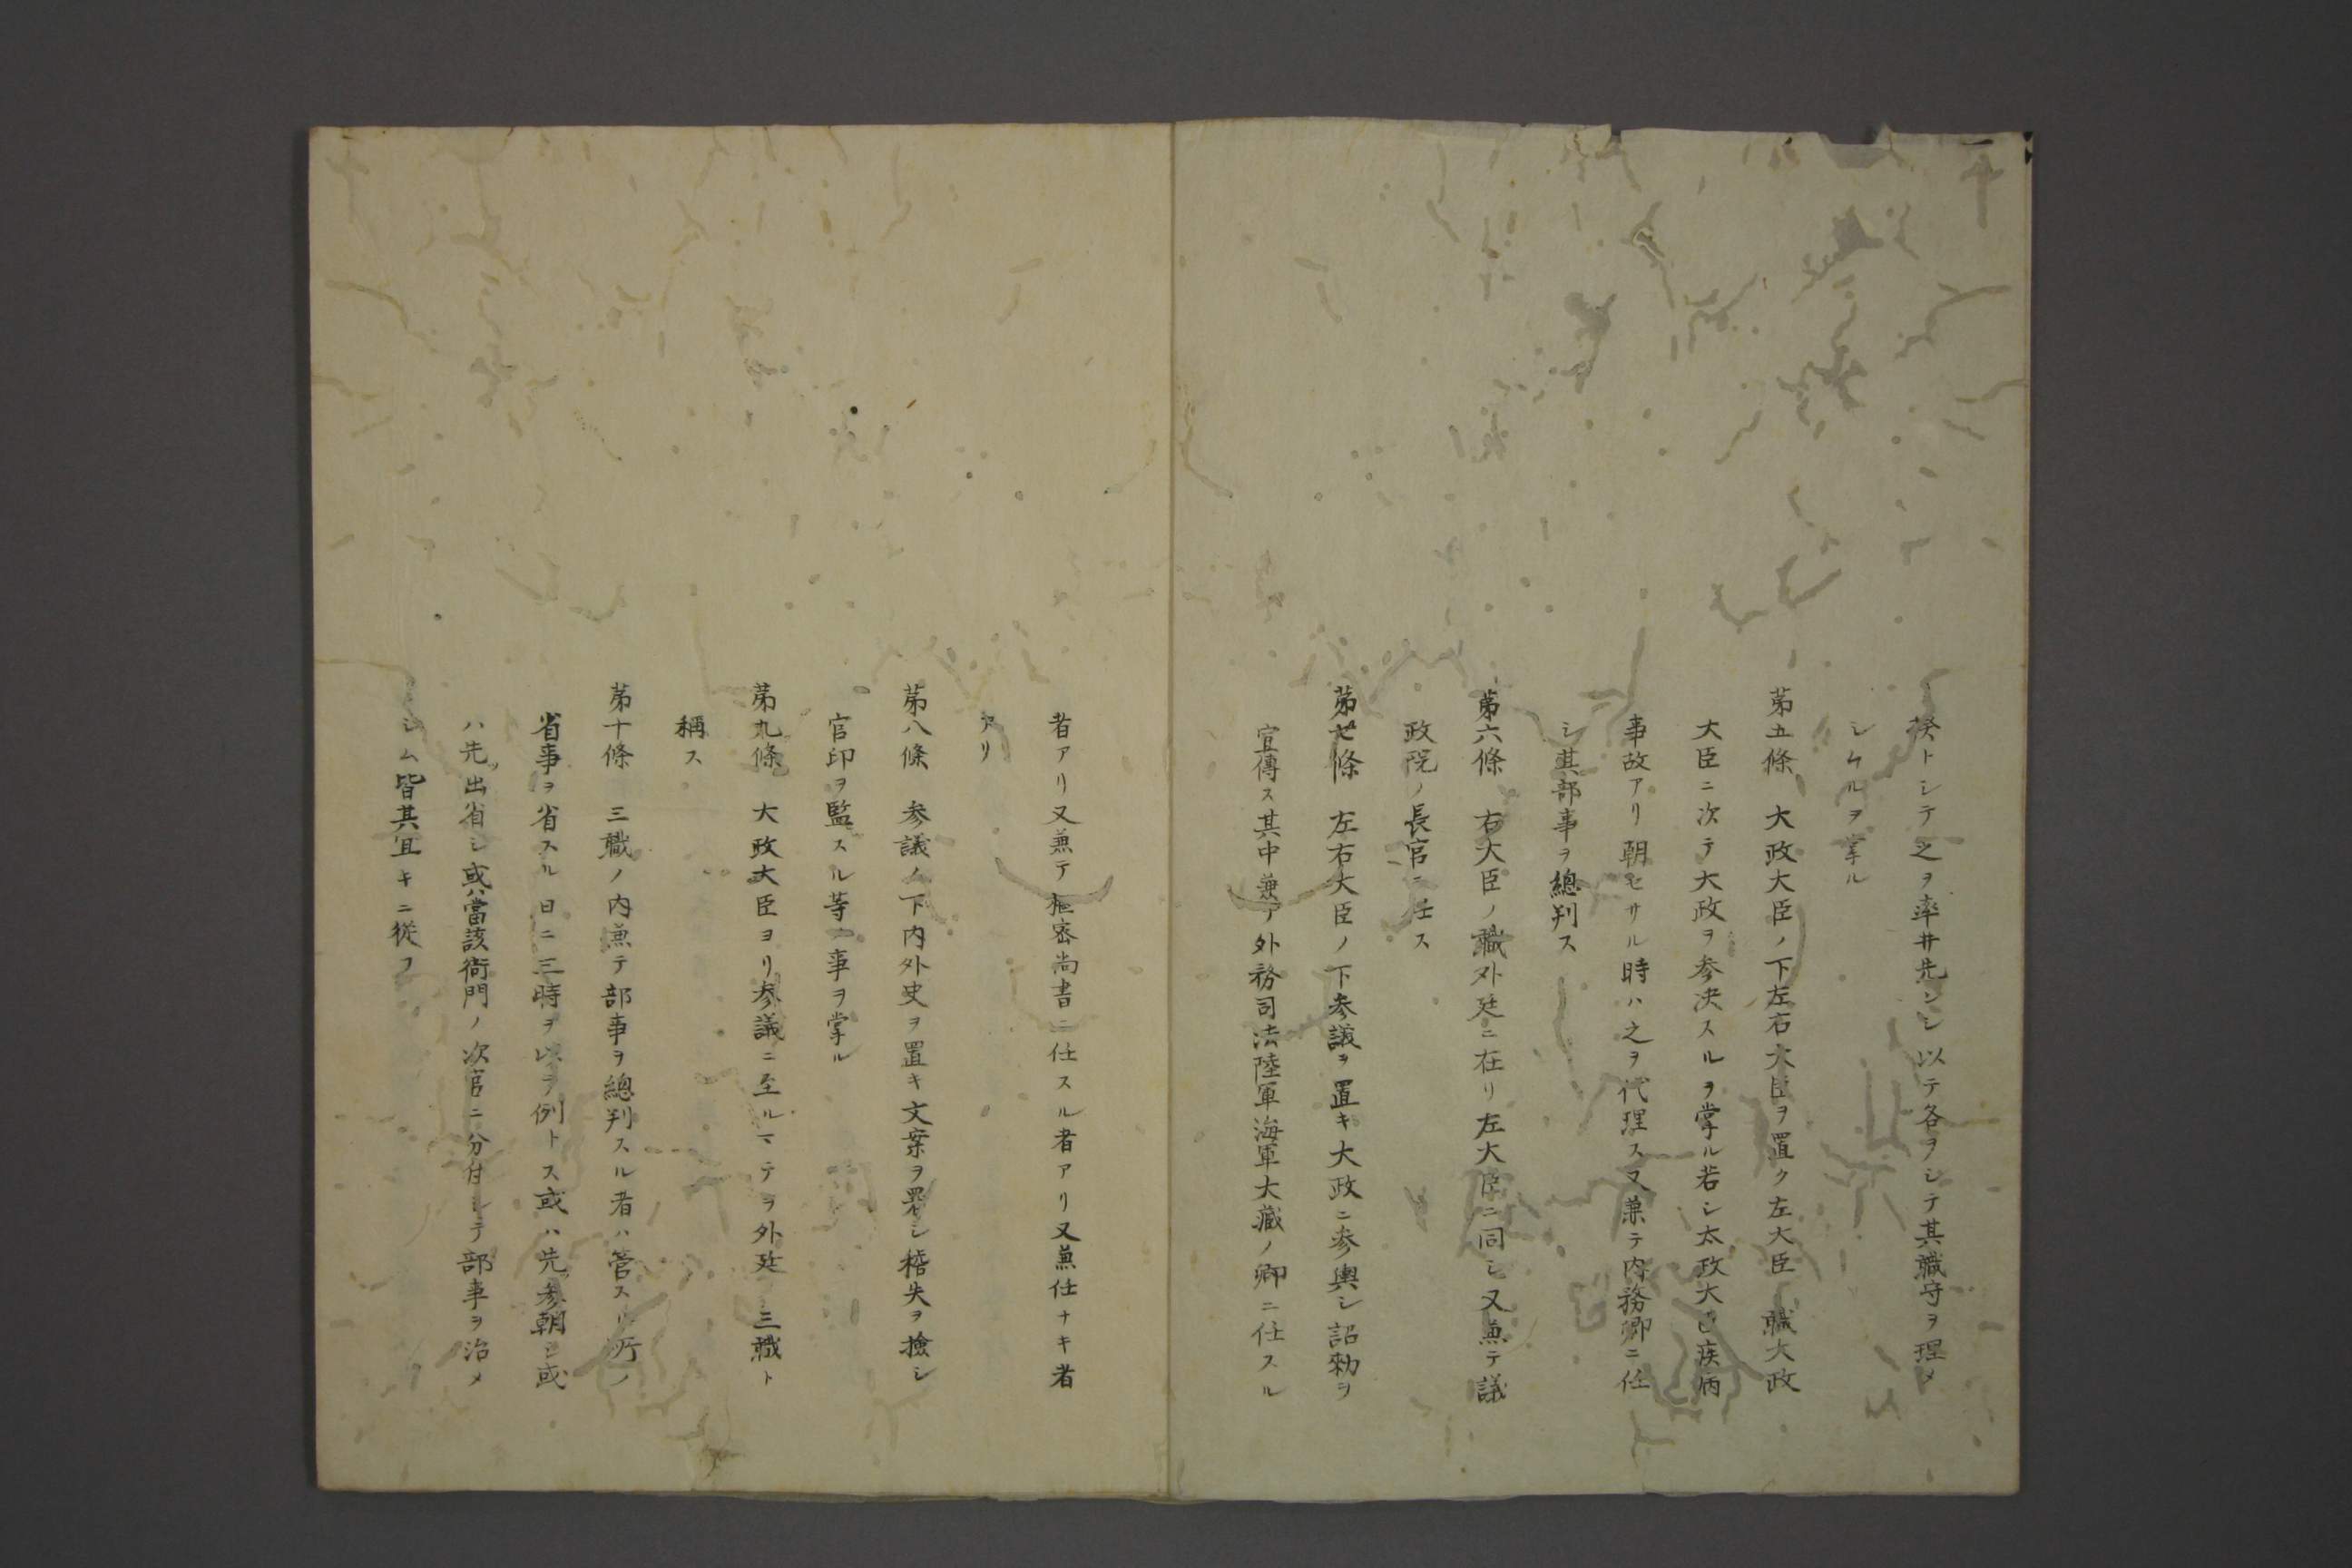 トシテ之ヲ率井先ンシ以テ各ヲシテ其職守ヲ理メ
シムルヲ掌ル
第五條　大政大臣ノ下左右大臣ヲ置ク左大臣　職大政
大臣ニ次テ大政ヲ参决スルヲ掌ル若シ太政大臣疾病
事故アリ朝セサル時ハ之ヲ代理ス又兼テ内務卿ニ任
シ其部事ヲ總判ス
第六條　右大臣ノ職外廷ニ在リ左大臣ニ同シ又兼テ議
政院ノ長官ニ任ス
第七條　左右大臣ノ下参議ヲ置キ大政ニ参與シ詔勅ヲ
宣傳ス其中兼テ外務司法陸軍海軍大藏ノ卿ニ任スル
者アリ又兼テ樞密尚書ニ任スル者アリ又兼任ナキ者
アリ
第八條　参議ノ下内外史ヲ置キ文案ヲ署シ稽失ヲ撿シ
官印ヲ監スル等ノ事ヲ掌ル
第九條　大政大臣ヨリ参議ニ至ルマテヲ外廷　三職ト
稱ス
第十條　三職ノ内兼テ部事ヲ總判スル者ハ管スル所ノ
省事ヲ省スル日ニ三時ヲ以テ例トス或ハ先ツ参朝シ或
ハ先ツ出省シ或ハ當該衙門ノ次官ニ分付シテ部事ヲ治メ
シム皆其宜キニ從フ